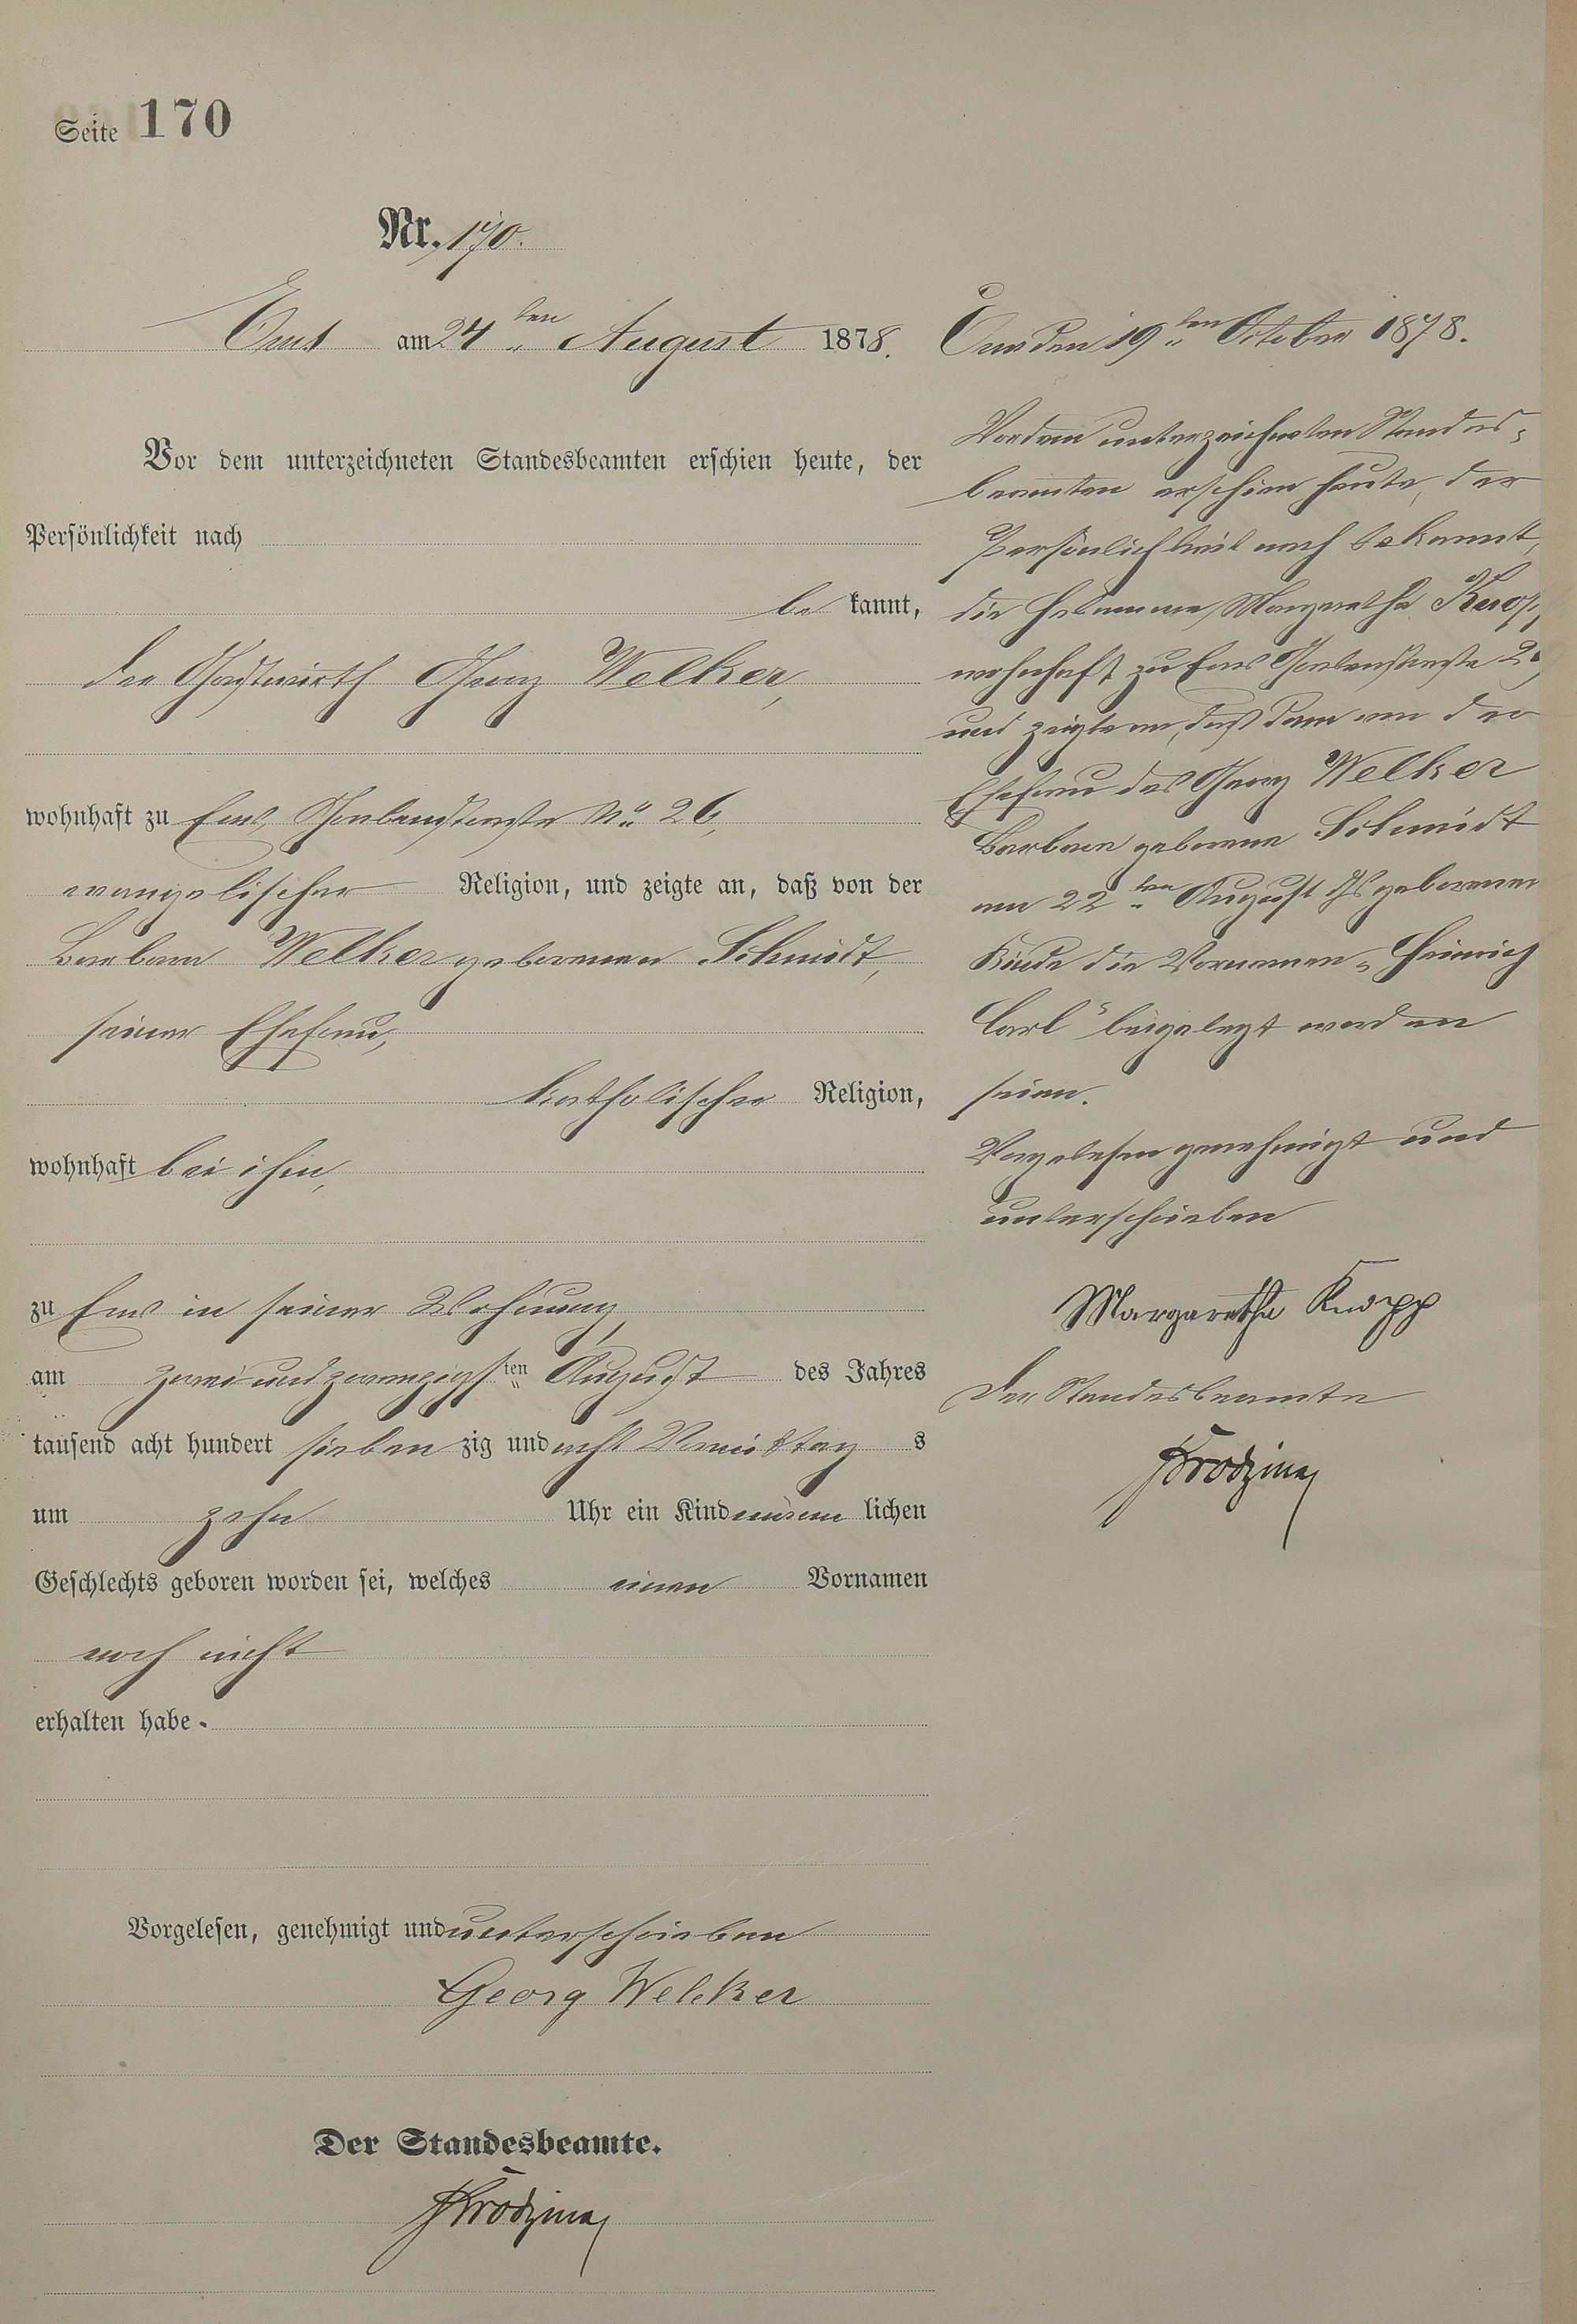 Seite 170
Nr. 170.
Ems am 24ten August 1878.
Vor dem unterzeichneten Standesbeamten erschien heute, der
Persönlichkeit nach
be kannt,
der Gastwirth Georg Welker,
wohnhaft zu Ems, Grabenstraße No 26,
evangelischer Religion, und zeigte an, daß von der
Barbara Welker geborenen Schmidt,
seiner Ehefrau,
katholischer Religion,
wohnhaft bei ihm,
zu Ems in seiner Wohnung,
am zwei und zwanzigsten August des Jahres
tausend acht hundert sieben zig und acht Vormittag s
um zehn Uhr ein Kind männ lichen
Geschlechts geboren worden sei, welches einen Vornamen
noch nicht
erhalten habe.
Vorgelesen, genehmigt und unterschrieben
Georg Welcker
Der Standesbeamte.
Ems den 19ten October 1878.
Vor dem unterzeichneten Standes-
beamten erschien heute, der
Persönlichkeit nach bekannt,
die Hebamme Margaretha Knopp,
wohnhaft zu Ems Grabenstraße
und zeigte an, daß dem von der
Ehefrau des Georg Welker
Barbara geborene Schmidt
am 22ten August geborenen
Kinde die Vornamen „Heinrich
Carl" beigelegt worden
seien.
Vorgelesen genehmigt und
unterschrieben
Margaretha Knopp
Der Standesbeamte